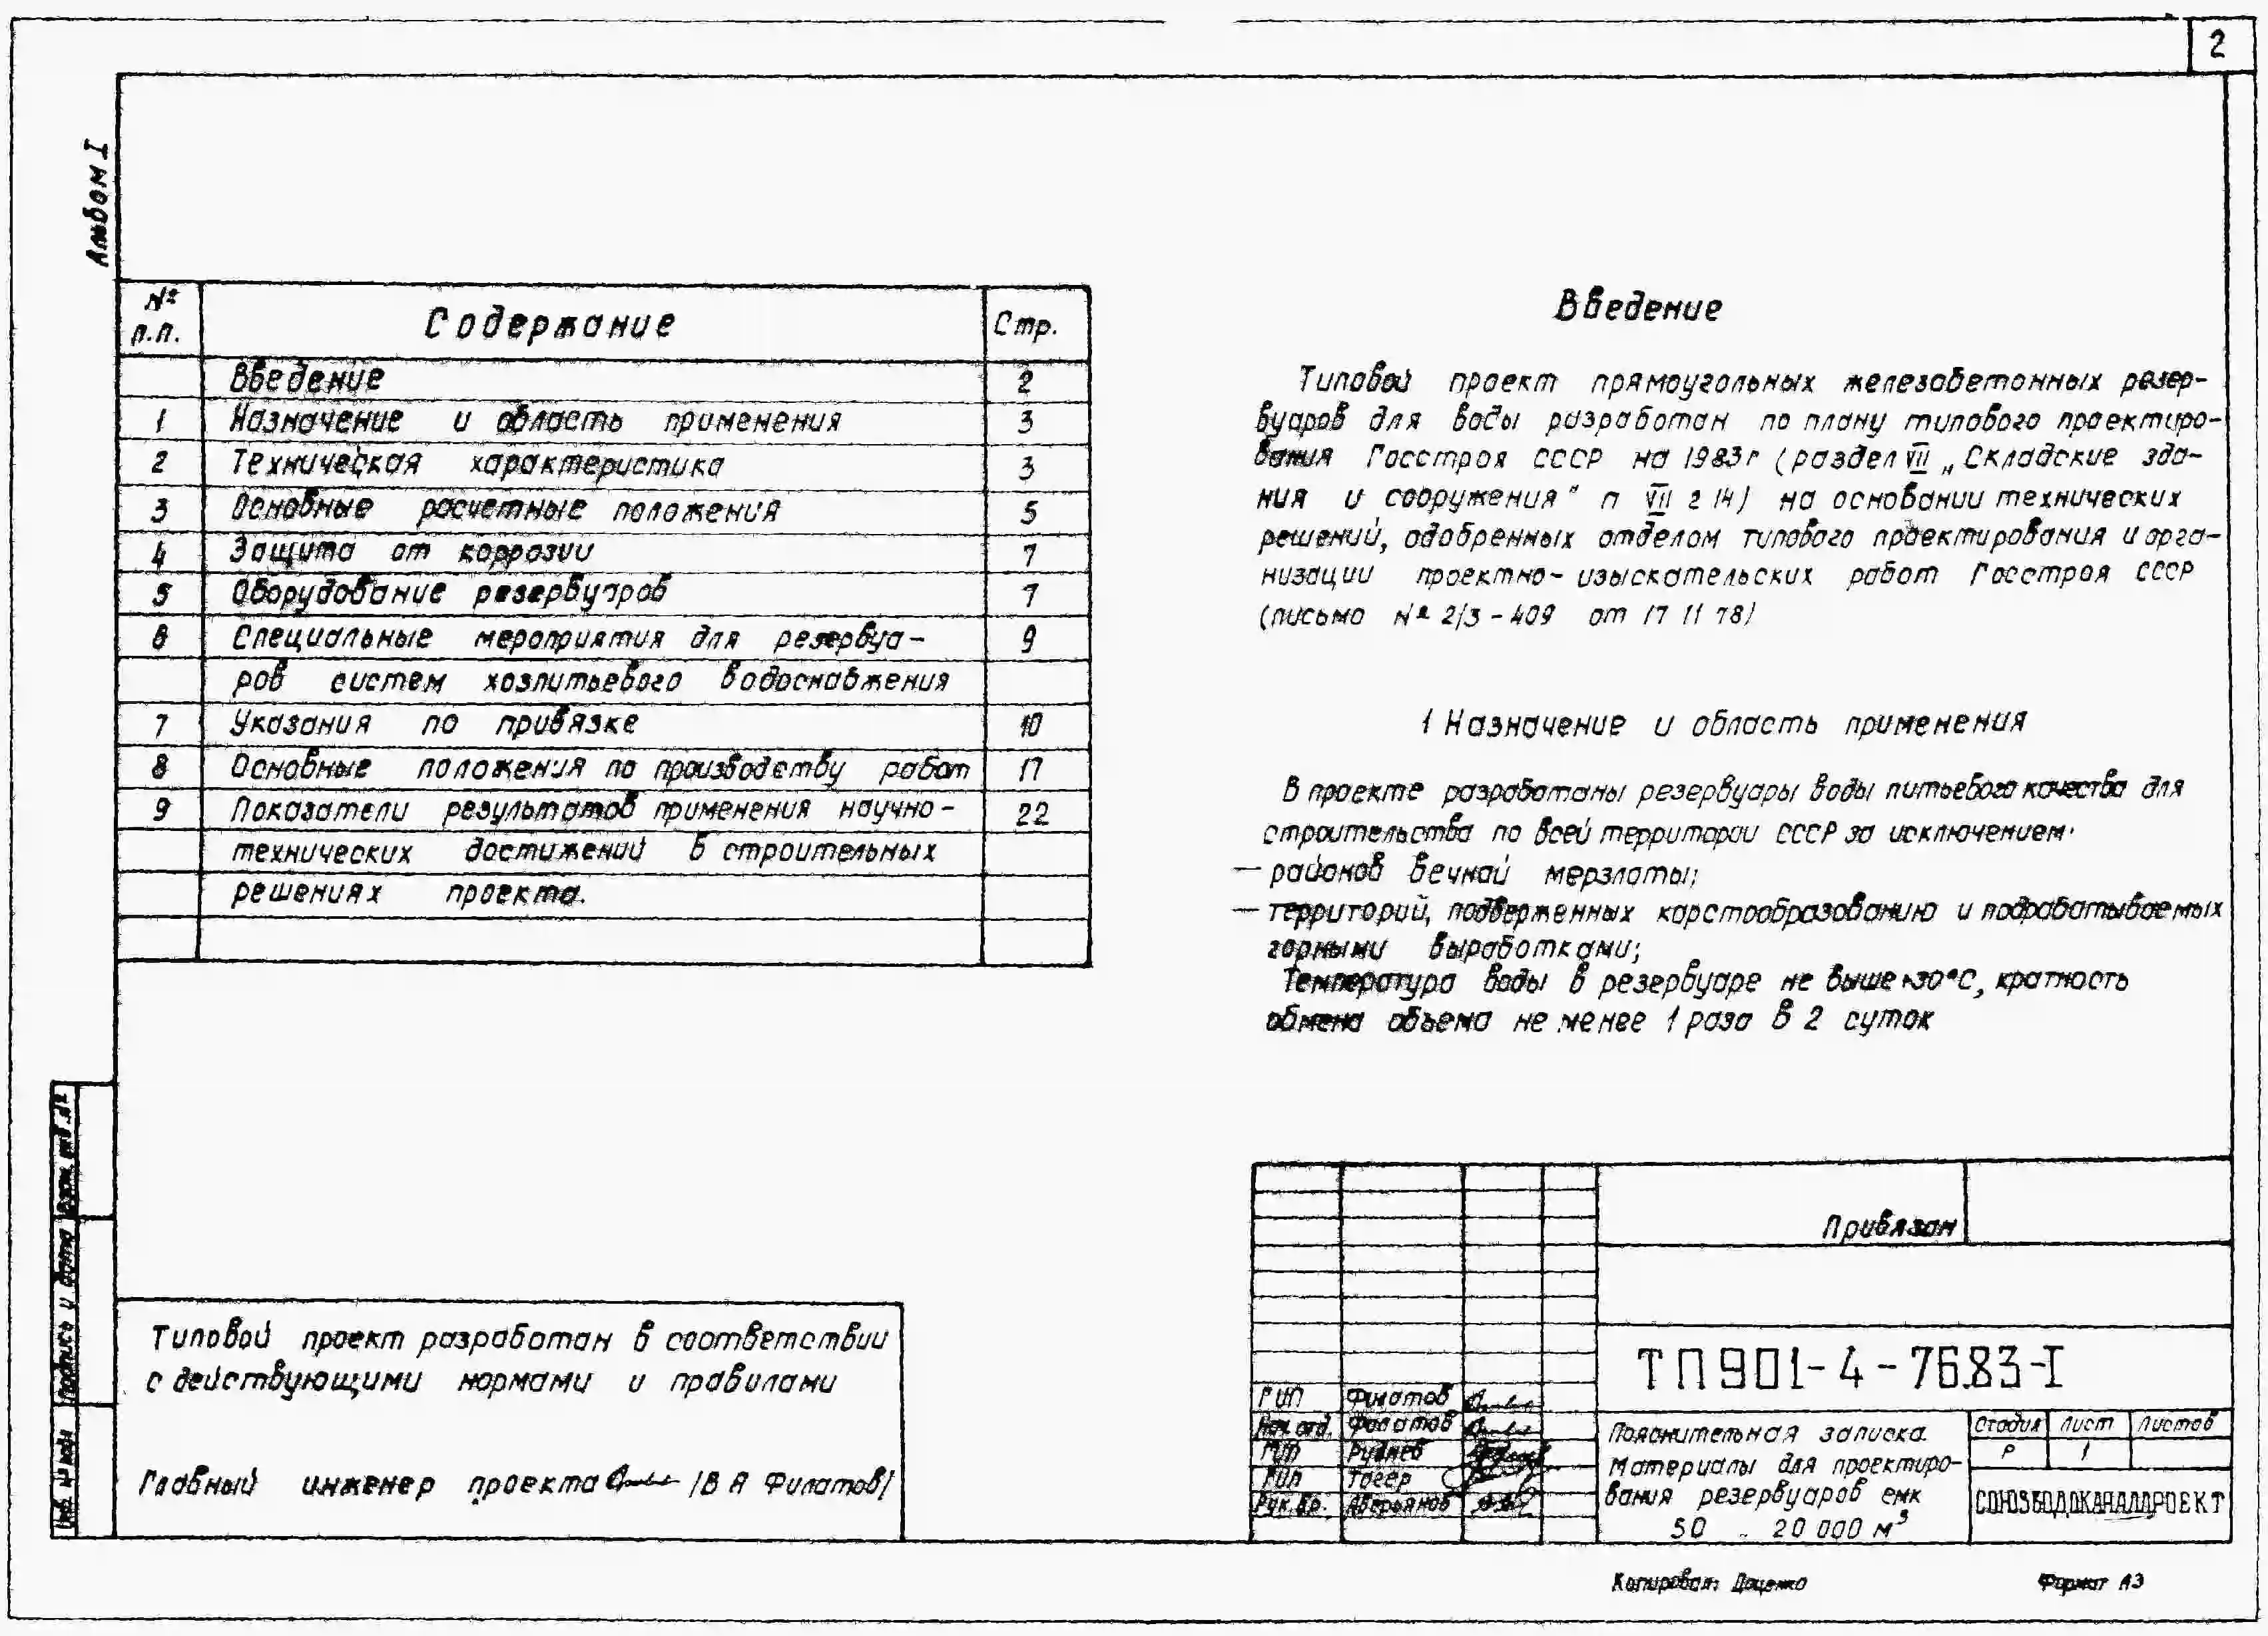 2
Альбом I
№ п.п. Содержание Стр.
Введение 2
1 Назначение и область применения 3
2 Техническая характеристика 3
3 Основные расчетные положения 5
4 Защита от коррозии 7
5 Оборудование резервуаров 7
6 Специальные мероприятия для резервуа- 9
ров систем хозпитьевого водоснабжения
7 Указания по привязке 10
8 Основные положения по производству работ 17
9 Показатели результатов применения научно- 22
технических достижений в строительных
решениях проекта.
Типовой проект разработан в соответствии
с действующими нормами и правилами
Главный инженер проекта /В А Филатов/
Инв. № подл Подпись и дата Взам. инв. №
Введение
Типовой проект прямоугольных железобетонных резер-
вуаров для воды разработан по плану типового проектиро-
вания Госстроя СССР на 1983г (раздел VII „Складские зда-
ния и сооружения" п VII 2 14) на основании технических
решений, одобренных отделом типового проектирования и орга-
низации проектно-изыскательских работ Госстроя СССР
(письмо № 2/3-409 от 17 11 78)
1 Назначение и область применения
В проекте разработаны резервуары воды питьевого качества для
строительства по всей территории СССР за исключением·
— районов вечной мерзлоты;
— территорий, подверженных карстообразованию и подрабатываемых
горными выработками;
Температура воды в резервуаре не выше +30°С, кратность
обмена объема не менее 1 раза в 2 суток
Привязан
ТП901-4-76.83-I
ГИП Филатов
Нач. отд. Филатов
ГИП Руднев
ГИП Тагер
Рук. бр. Аверьянов
Пояснительная записка.
Материалы для проектиро-
вания резервуаров емк
50 - 20 000 м³
Стадия Лист Листов
Р 1
СОЮЗВОДОКАНАЛПРОЕКТ
Копировал: Доценко Формат А3